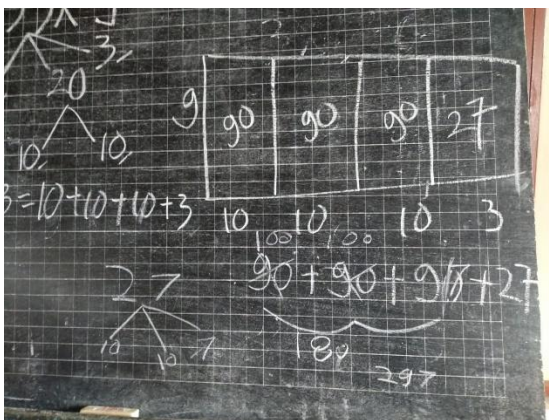 3,
20
10, 10,
9 90 90 90 27
3=10+10+10+3
10 10 10 3
100 100
90+90+90+27
27
10 10 7
180
297